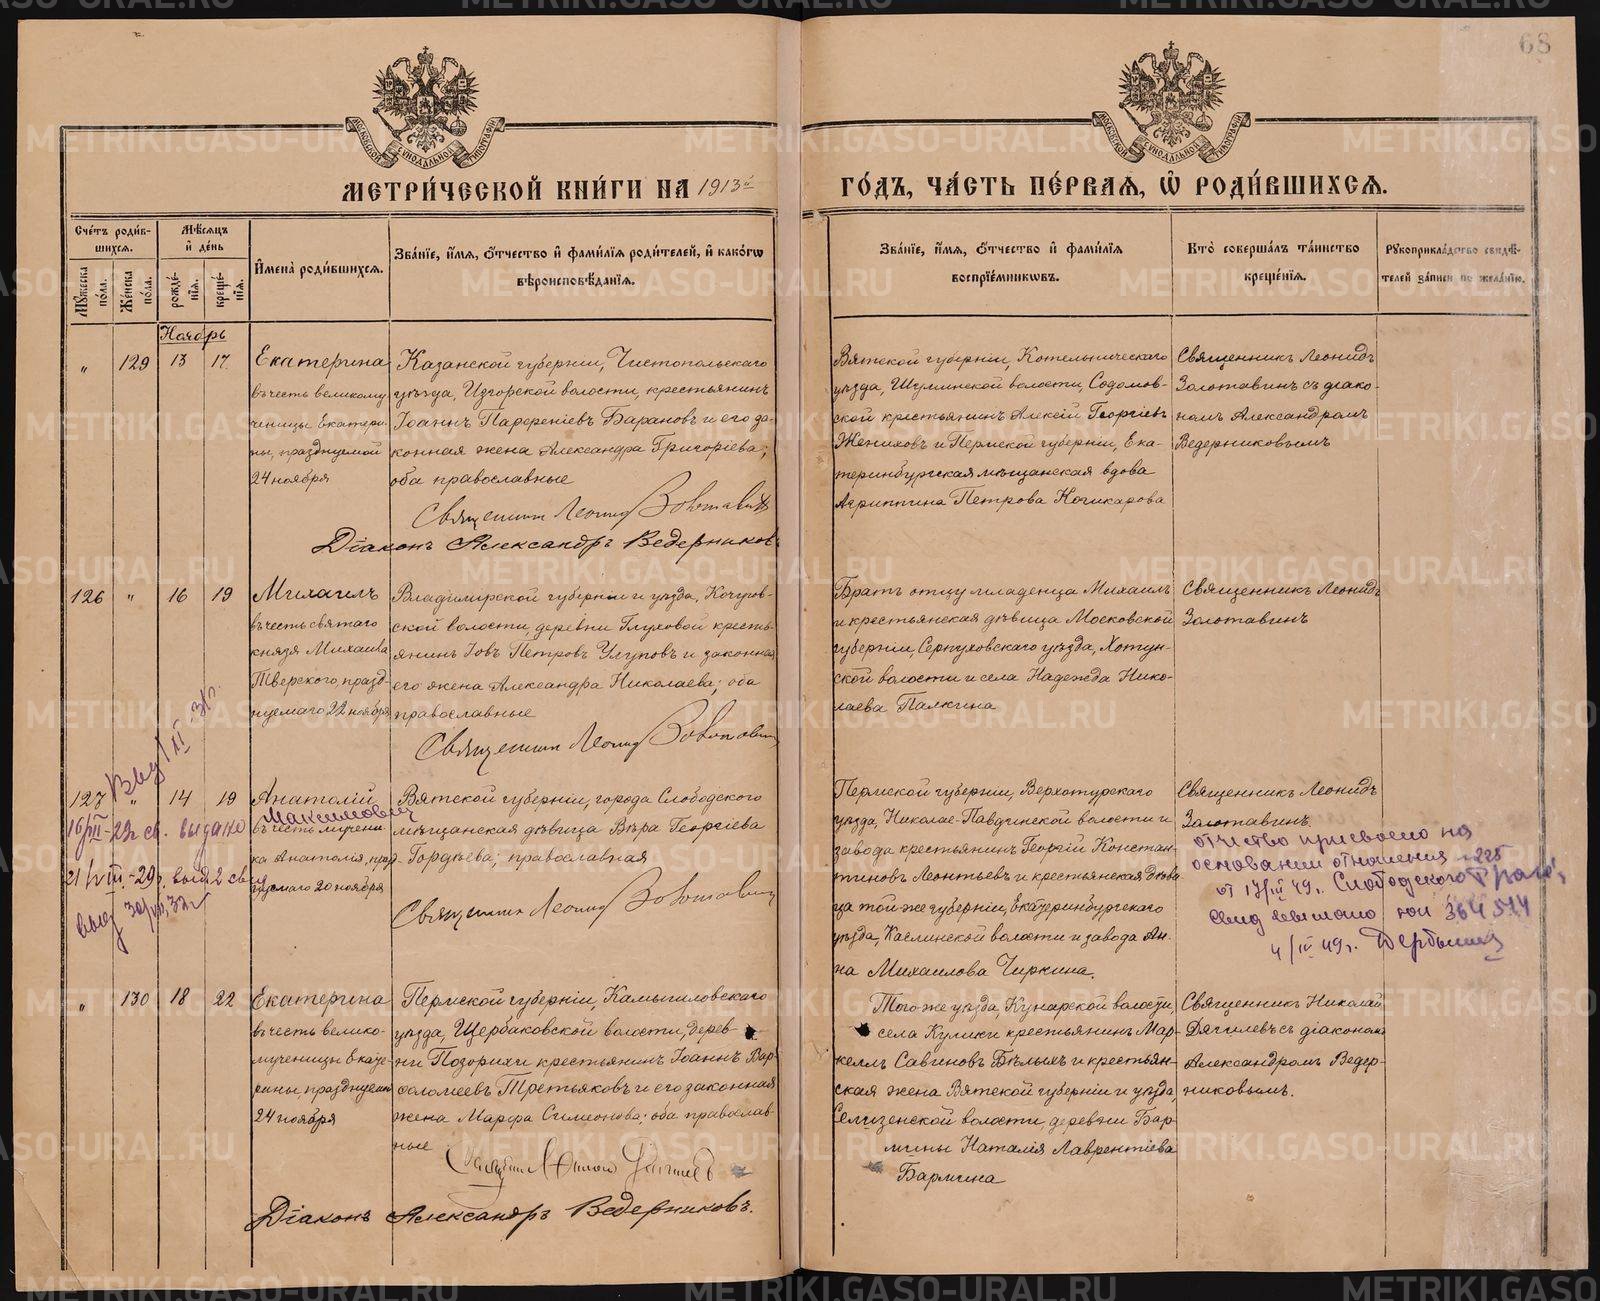 68
МОСКОВСКОЙ СѴНОДАЛЬНОЙ ТИПОГРАФІИ
МОСКОВСКОЙ СѴНОДАЛЬНОЙ ТИПОГРАФІИ
МЕТРИ́ЧЕСКОЙ КНИ́ГИ НА 1913й
ГО́ДЪ, ЧА́СТЬ ПЕ́РВАѦ, Ѡ҆ РОДИ́ВШИХСѦ.
Сче́тъ роди́в-
шихсѧ.
Мꙋ́жеска по́ла.
Же́нска по́ла.
Мѣ́сѧцъ
и҆ де́нь
рожде́-
нїѧ.
креще́-
нїѧ.
И҆мена̀ роди́вшихсѧ.
Зва́нїе, и҆́мѧ, ѻ҆́тчество и҆ фами́лїѧ роди́телей, и҆ како́гѡ
вѣроисповѣ́данїѧ.
Зва́нїе, и҆́мѧ, ѻ҆́тчество и҆ фами́лїѧ
воспрїе́мникѡвъ.
Кто̀ соверша́лъ та́инство
креще́нїѧ.
Рꙋкоприкла́дство свидѣ́-
телей за́писи по жела́нїю.
Ноябрь
" 129 13 17.
Екатерина
въ честь велико му-
ченицы Екатери-
ны, празднуемой
24 ноября
Казанской губерніи, Чистопольскаго
уѣзда, Изгорской волости, крестьянинъ
Іоаннъ Парѳеніевъ Барановъ и его за-
конная жена Александра Григоріева;
оба православные
Священникъ Леонидъ Золотавинъ
Діаконъ Александръ Ведерниковъ
Вятской губерніи, Котельническаго
уѣзда, Шулинской волости, Содомов-
ской крестьянинъ Алексій Георгіевъ
Жениховъ и Пермской губерніи, Ека-
теринбургская мѣщанская вдова
Агриппина Петрова Кочикарова
Священникъ Леонидъ
Золотавинъ съ діако-
номъ Александромъ
Ведерниковымъ
126 " 16 19
Михаилъ
въ честь святаго
князя Михаила
Тверского, празд-
нуемаго 22 ноября
Владимирской губерніи и уѣзда, Кочуров-
ской волости, деревни Глуховой кресть-
янинъ Іовъ Петровъ Улуповъ и законная
его жена Александра Николаева; оба
православные
Священникъ Леонидъ Золотавинъ
Братъ отцу младенца Михаилъ
и крестьянская дѣвица Московской
губерніи, Серпуховскаго уѣзда, Хотун-
ской волости и села Надежда Нико-
лаева Палкина
Священникъ Леонидъ
Золотавинъ
Выд 1/XI-31г.
127 " 14 19
16/III-29г св. выдано
21/VIII.-29г. выд. 2 свид
выд 30/VII, 32г
Анатолій
Максимович
въ честь мучени-
ка Анатолія, празд-
нуемаго 20 ноября
Вятской губерніи, города Слободского
мѣщанская дѣвица Вѣра Георгіева
Гордѣева; православная
Священникъ Леонидъ Золотавинъ
Пермской губерніи, Верхотурскаго
уѣзда, Николае-Павдинской волости и
завода крестьянинъ Георгій Констан-
тиновъ Леонтьевъ и крестьянская дѣви-
ца той же губерніи, Екатеринбургскаго
уѣзда, Каслинской волости и завода Ан-
на Михаилова Чиркина.
Священникъ Леонидъ
Золотавинъ.
отчество присвоено на
основании отношения №225
от 17/III 49г. Слободского
свид
4/IV 49г.
" 130 18 22
Екатерина
въ честь велико-
мученицы Екате-
рины, празднуемой
24 ноября
Пермской губерніи, Камышловскаго
уѣзда, Щербаковской волости, дерев-
ни Позорихи крестьянинъ Іоаннъ Вар-
ѳоломеевъ Третьяковъ и его законная
жена Марѳа Симеонова; оба православ-
ные
Священникъ Николай Дягилевъ
Діаконъ Александръ Ведерниковъ.
Того же уѣзда, Кунарской волости,
села Кулики крестьянинъ Мар-
келлъ Саввиновъ Бѣлыхъ и крестьян-
ская жена Вятской губерніи и уѣзда,
Селезенской волости, деревни Бар-
мины Наталія Лаврентіева
Бармина
Священникъ Николай
Дягилевъ съ діакономъ
Александромъ Ведер-
никовымъ.
METRIKI.GASO-URAL.RU